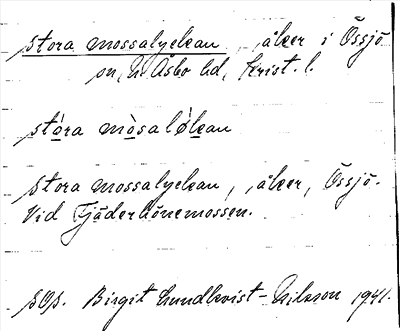 stora mossalyckan, åker i Össjö
sn, N. Åsbo hd, Krist. l.
stóra mòsalỳkan
Stora mossalyckan, åker, Össjö.
Vid Fjäderhönemossen.
Birgit Lundkvist-Nilsson 1941.